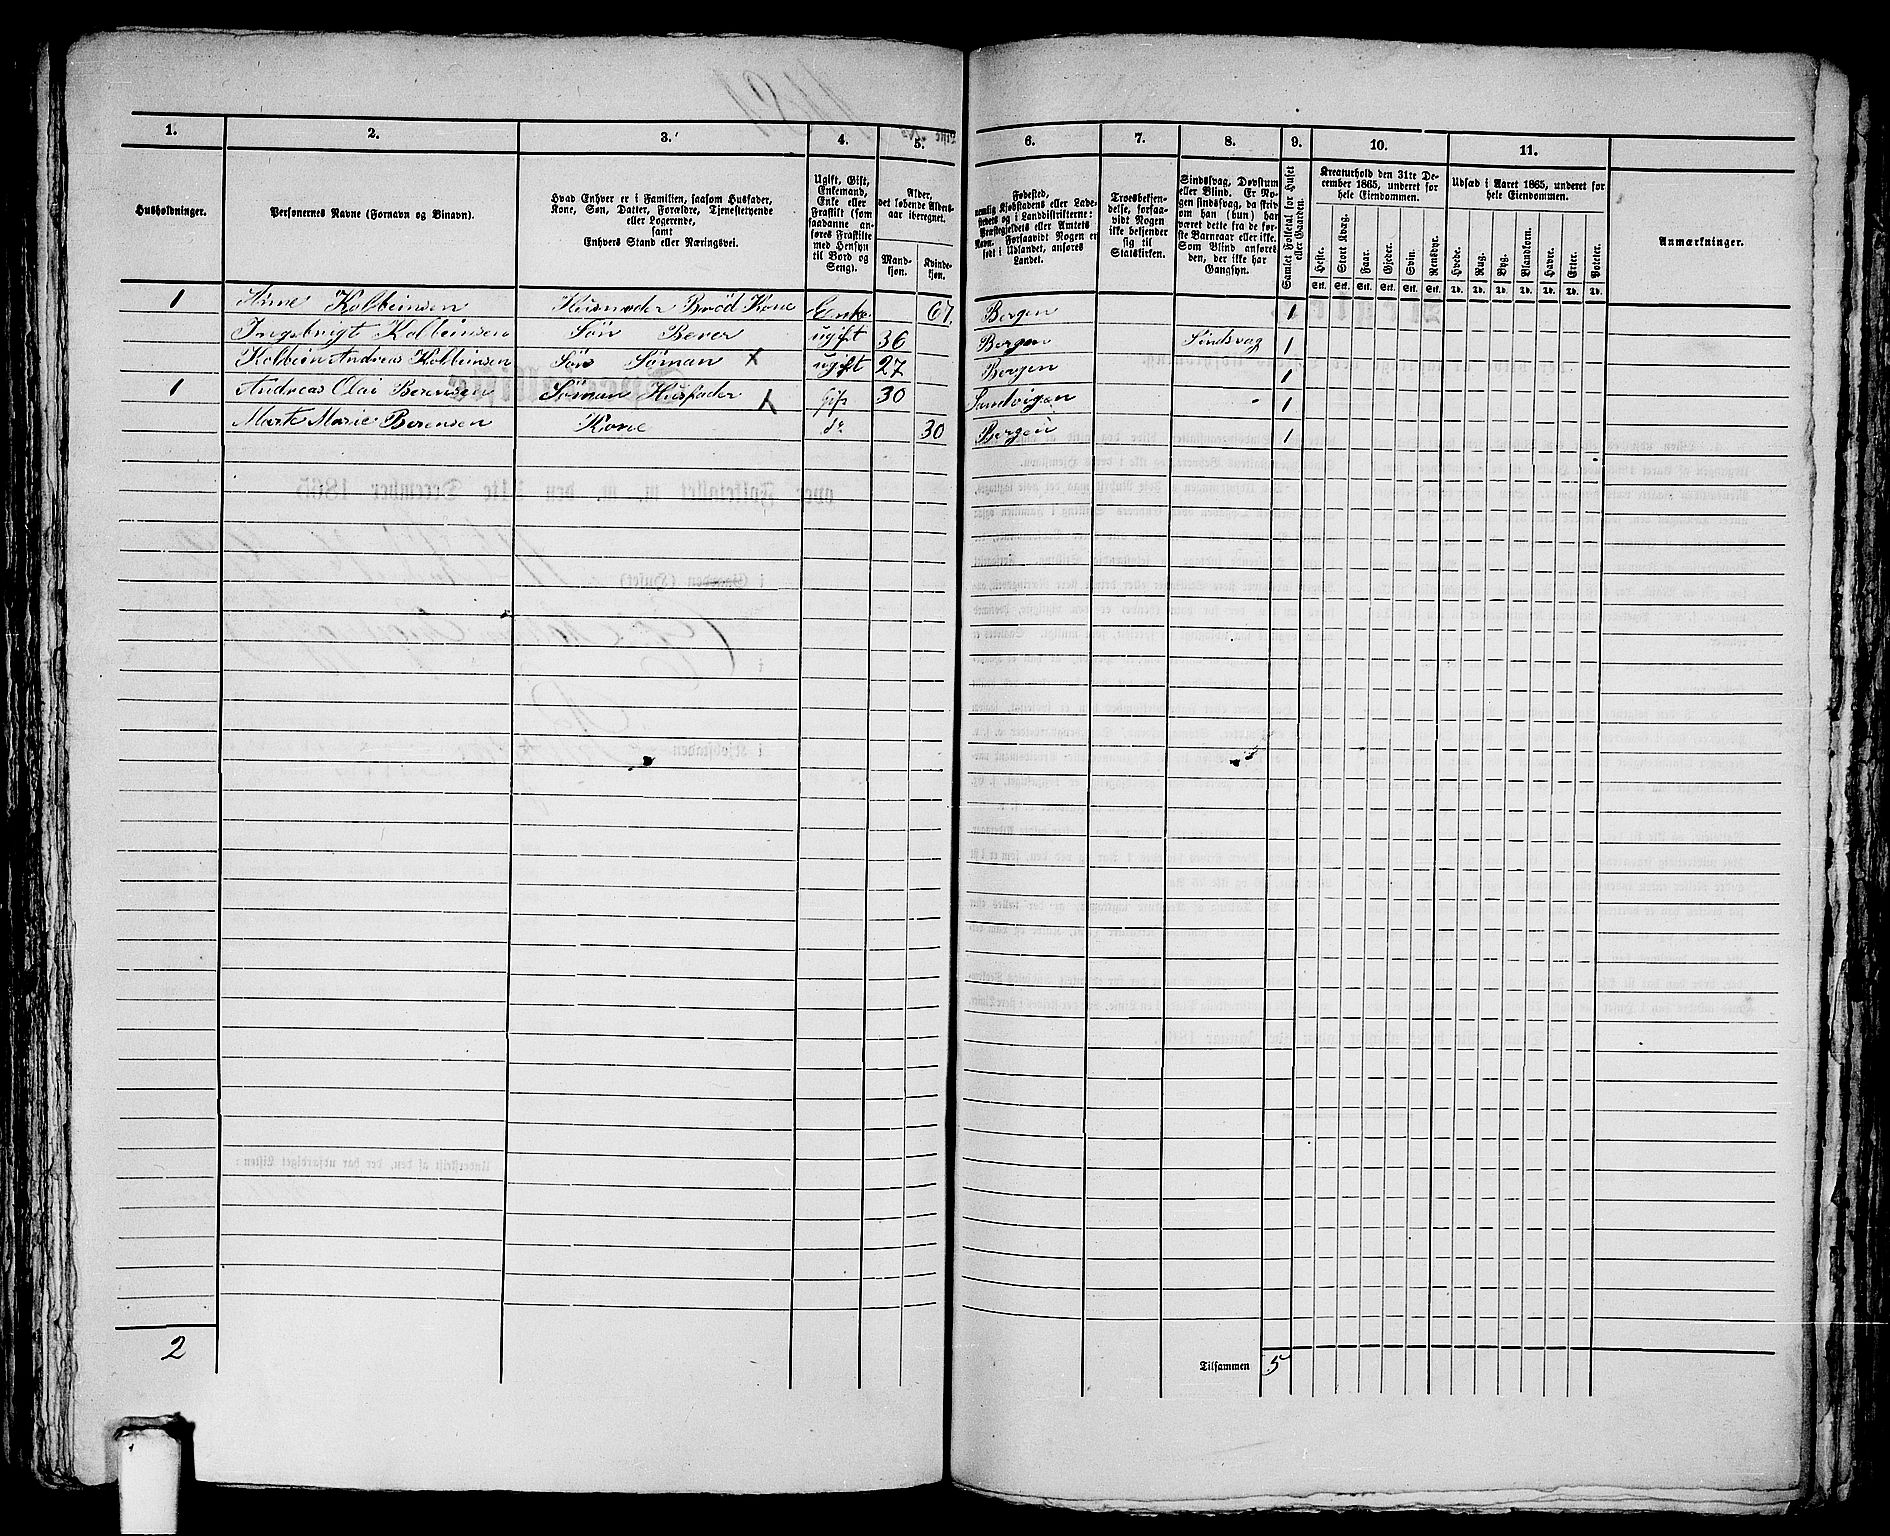 1. 2. 3. 4. 5. 6. 7. 8. 9. 10. 11.
Husholdninger.
Personernes Navne (Fornavn og Binavn).
Hvad Enhver er i Familien, saasom Husfader,
Kone, Søn, Datter, Forældre, Tjenestetyende
eller Logerende,
samt
Enhvers Stand eller Næringsvei.
Ugift, Gift,
Enkemand,
Enke eller
Fraskilt (som
saadanne an-
føres Fraskilte
med Hensyn
til Bord og
Seng).
Alder,
det løbende Alders-
aar iberegnet.
Mand-
kjøn.
Kvinde-
kjøn.
Fødested,
nemlig Kjøbstadens eller Lade-
stedets og i Landdistrikterne:
Præstegjeldets eller Amtets
Navn. Forsaavidt Nogen er
født i Udlandet, anføres
Landet.
Troesbekjen-
delse, forsaa-
vidt Nogen
ikke bekjender
sig til
Statskirken.
Sindssvag, Døvstum
eller Blind. Er No-
gen sindssvag, da skriv
om han (hun) har
været dette fra de før-
ste Barnaar eller ikke.
Som Blind anføres
den, der ikke har
Gangsyn.
Samlet Folketal for Huset
eller Gaarden.
Kreaturhold den 31te De-
cember 1865, underet for
hele Eiendommen.
Heste. Stort Kvæg. Faar. Gjeder. Svin. Rensdyr.
Stk. Stk. Stk. Stk. Stk. Stk.
Udsæd i Aaret 1865, underet for
hele Eiendommen.
Hvede. Rug. Byg. Blandkorn. Havre. Erter. Poteter.
Td. Td. Td. Td. Td. Td. Td.
Anmærkninger.
1 Kolbeinsen Husmoder Brød Kone Enke 67. Bergen 1
Ingebrigt Kolbeinsen Søn Bever ugift 36 Bergen Sindsvag 1
Kolbein Andreas Kolbeinsen Søn Søman X ugift 27 Bergen 1
1 Andreas Olai Berensen Söman Husfader X gift 30 Sandvigen 1
Marte Marie Berensen Kone do 30 Bergen 1
2
Tilsammen 5